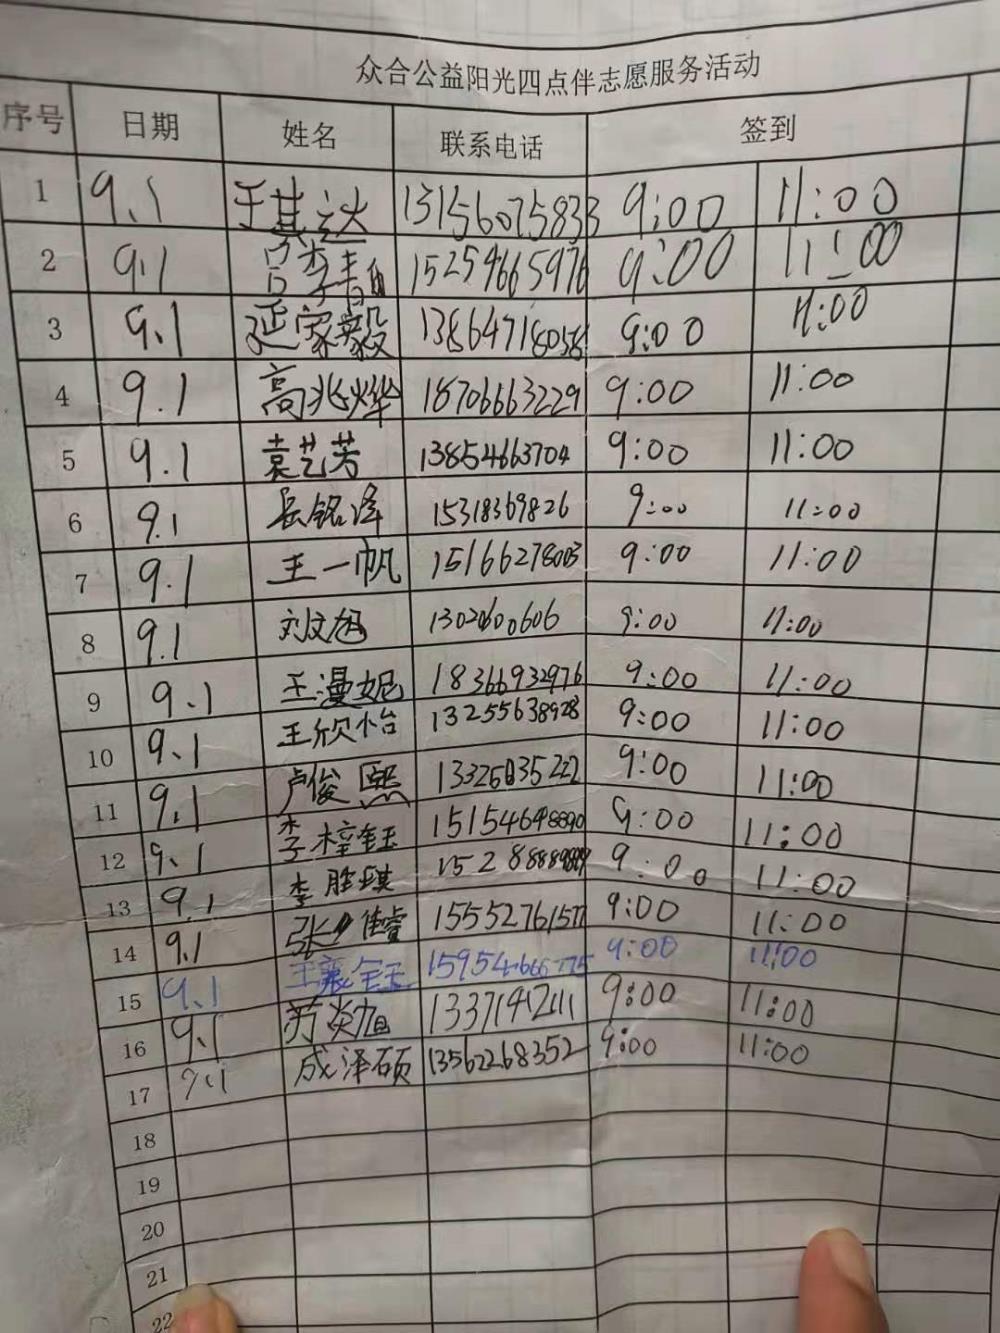 众合公益阳光四点伴志愿服务活动
序号 日期 姓名 联系电话 签到
1 9.1 于其达 13156075833 9:00 11:00
2 9.1 15254665976 9:00 11:00
3 9.1 延家毅 9:00 11:00
4 9.1 高兆烨 18706663229 9:00 11:00
5 9.1 袁艺芳 13854663704 9:00 11:00
6 9.1 岳铭泽 15318369826 9:00 11:00
7 9.1 王一帆 15166278003 9:00 11:00
8 9.1 刘文旭 9:00 11:00
9 9.1 王漫妮 18366932976 9:00 11:00
10 9.1 王欣怡 13255638928 9:00 11:00
11 9.1 卢俊熙 9:00 11:00
12 9.1 李梓钰 9:00 11:00
13 9.1 李胜琪 9:00 11:00
14 9.1 张佳睿 15552761577 9:00 11:00
15 9.1 9:00 11:00
16 9.1 13371942111 9:00 11:00
17 9.1 成泽硕 13562268352 9:00 11:00
18
19
20
21
22